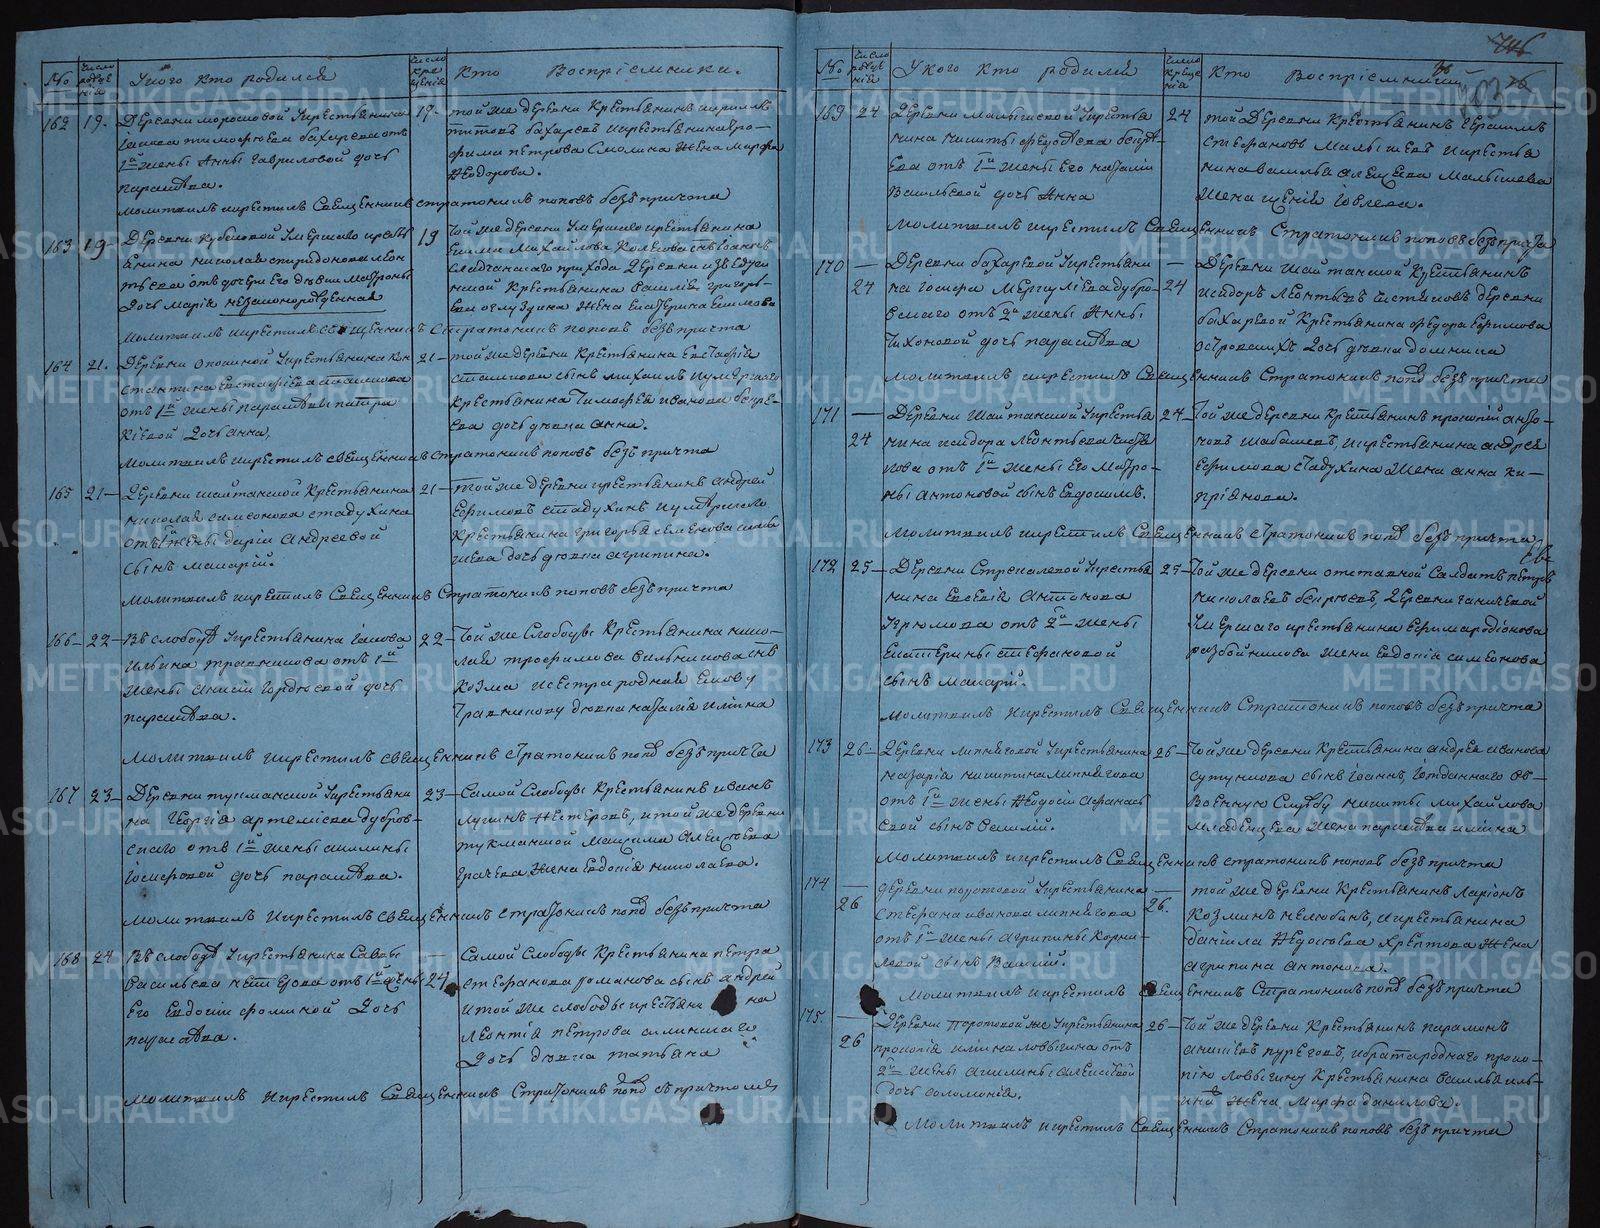 № Число рождения У кого кто родился Число крещения Кто восприемники.
162 19. Деревни Морозовой у крестьянина
Иакова Тимофеева Бахарева отъ
1й жены Анны Гавриловой дочь
Параскева.
19. той же деревни крестьянинъ Кириллъ
Титовъ Бахаревъ и крестьянина Тро-
фима Петрова Смолина жена Марфа
Феодорова.
Молитвилъ и крестилъ священникъ Стратоникъ Поповъ безъ причта
163 19 Деревни Кубасовой умершаго кресть
янина Николая Спиридонова Леон
тьева отъ дочери его девки Матроны
дочь Мария незаконнорожденная
19 той же деревни умершаго крестьянина
Екима Михайлова Колесова сынъ Иоаннъ
Сладчанскаго прихода деревни
крестьянина Василия Григорь-
ева Оглуздина жена Екатерина Екимова
Молитвилъ и крестилъ священникъ Стратоникъ Поповъ безъ причта
164 21. Деревни Опокиной у крестьянина Кон
стантина Евстафиева Сташкова
отъ 1й жены Параскевы Патра
киевой дочь Анна,
21 той же деревни крестьянина Евстафия
Сташкова сынъ Михаилъ и умершаго
крестьянина Тимофея Иванова Бекре-
ева дочь девка Анна.
Молитвилъ и крестилъ священникъ Стратоникъ Поповъ безъ причта
165 21 Деревни Шайтанской крестьянина
Николая Симеонова Стадухина
отъ 1й жены Дарьи Андреевой
сынъ Макарий.
21 той же деревни крестьянинъ Андрей
Ефимовъ Стадухинъ и умершаго
крестьянина Григорья Семенова
дочь девка Агрипина.
Молитвилъ и крестилъ священникъ Стратоникъ Поповъ безъ причта
166 22 Въ слободе у крестьянина Иакова
Ильина Травникова отъ 1й
жены Анисии Гордеевой дочь
Параскева.
22 той же слободы крестьянина Нико-
лая Трофимова Сильникова сынъ
Козма и сестра родная Екову
Травникову девка Наталия Ильина
Молитвилъ и крестилъ священникъ Стратоникъ Попов безъ причта
167 23 Деревни Тукманской у крестьяни
на Георгия Артемиева Дубров-
скаго отъ 1й жены Акилины
Иосифовой дочь Параскева.
23 Самой слободы крестьянинъ Иванъ
Лукинъ Нестеровъ, и той же деревни
Тукманской Максима Алексеева
Грачева жена Евдокия Николаева.
Молитвилъ и крестилъ священникъ Стратоникъ Попов безъ причта
168 24 Въ слободе у крестьянина Саввы
Васильева отъ 1й жены
его Евдокии Фоминой дочь
Параскева.
24 Самой слободы крестьянина Петра
Стефанова Романова сынъ Андрей
и той же слободы крестьянина
Леонтия Петрова
дочь девка Татьяна
Молитвилъ и крестилъ священникъ Стратоникъ Попов съ причтомъ
№ Число рождения У кого кто родился Число крещения Кто восприемники
169 24 Деревни Малышевой у кресть
янина Никиты Федотова Бекре-
ева отъ 1й жены его Наталии
Васильевой дочь Анна
24 той деревни крестьянинъ Герасимъ
Стефановъ Малышевъ и крестья
нина Василья Алексеева Малышева
жена Ксения Иовлева.
Молитвилъ и крестилъ священникъ Стратоникъ Поповъ безъ причта
170 24 Деревни Бахаревой у крестьяни
на Иосифа Меркулиева Дубро-
вскаго отъ 2й жены Анны
Тихоновой дочь Параскева
24 Деревни Шайтанской крестьянинъ
Исидоръ Леонтьевъ Чистяковъ деревни
Бахаревой крестьянина Федора Ефимова
Островскихъ дочь девка Домника
Молитвилъ и крестилъ священникъ Стратоникъ Попов безъ причта
171 24 Деревни Шайтанской у крестья
нина Исидора Леонтьева Чистя
кова отъ 1й жены его Матро-
ны Антоновой сынъ Евдокимъ.
24 той же деревни крестьянинъ Прокопий Анто-
новъ Шабашевъ, и крестьянина Андрея
Ефимова Стадухина жена Анна Ки-
прианова.
Молитвилъ и крестилъ священникъ Стратоникъ Попов безъ причта
172 25 Деревни Стрекаловой у крестья
нина Евсевия Антонова
Изрюмова отъ 2й жены
Екатерины Стефановой
сынъ Макарий.
25 той же деревни отставной солдатъ Петръ
Николаевъ Бекрюевъ, деревни Ганичевой
умершаго крестьянина Ефима Родионова
Разбойникова жена Евдокия Симеонова
Молитвилъ и крестилъ священникъ Стратоникъ Поповъ безъ причта
173 26 Деревни Липняговой у крестьянина
Назария Никитина Липнягова
отъ 1й жены Феодосии Афанась
евой сынъ Василий.
26 той же деревни крестьянина Андрея Иванова
Сутункова сынъ Иоаннъ, и отданнаго въ
военную службу Никиты Михайлова
Младенцева жена Параскева Ильина
Молитвилъ и крестилъ священникъ Стратоникъ Поповъ безъ причта
174 26 Деревни Поротовой у крестьянина
Стефана Иванова Липнягова
отъ 1й жены Агрипины Корни-
ловой сынъ Василий.
26. той же деревни крестьянинъ Ларионъ
Козминъ Нелюбинъ, и крестьянина
Федосеева жена
Агрипина Антонова.
Молитвилъ и крестилъ священникъ Стратоникъ Попов безъ причта
175. 26 Деревни Поротовой же у крестьянина
Прокопия Ильина Ловыгина отъ
2й жены Акилины Алексеевой
дочь Соломония.
26 той же деревни крестьянинъ Парамонъ
Аникиевъ Пуреговъ, и брата роднаго Проко-
пию Ловыгину крестьянина Василья Иль-
ина жена Марфа Данилова.
Молитвилъ и крестилъ священникъ Стратоникъ Поповъ безъ причта